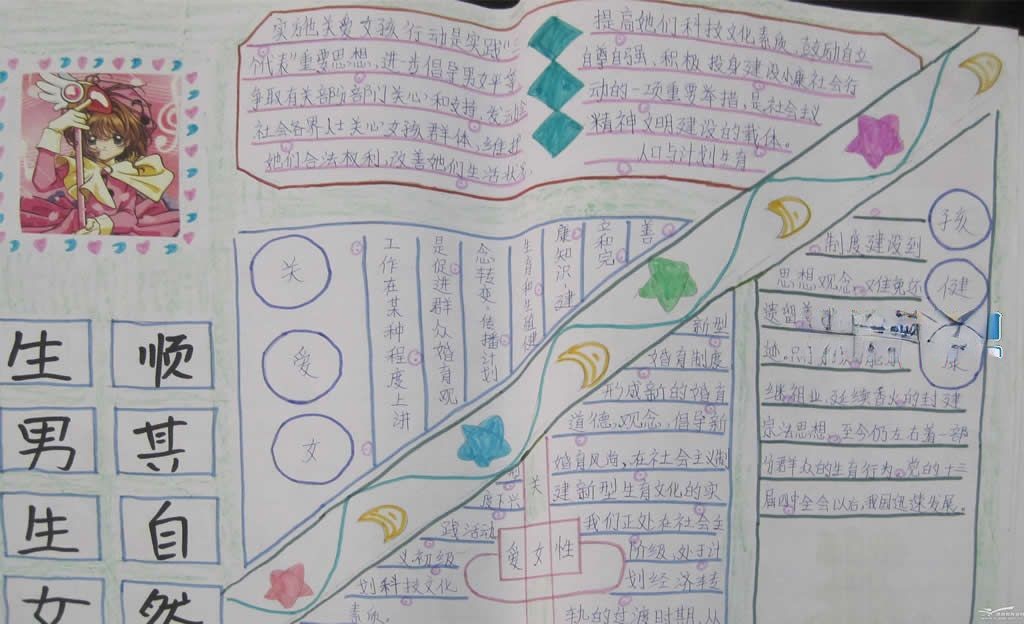 实施关爱女孩行动是实践"三
个代表"重要思想,进一步倡导男女平等
争取有关部门部门关心和支持,发动全
社会各界人士关心女孩群体,维护
她们合法权利,改善她们生活状
提高她们科技文化素质,鼓励自立
自尊自强,积极投身建设小康社会行
动的一项重要举措,是社会主义
精神文明建设的载体。
人口与计划生育
生男生女
顺其自然
关
爱
女
工作在某种程度上讲
是促进群众婚育观
念转变,传播计划
生育和生殖健
康知识,建
立和完
善
新型
婚育制度
形成新的婚育
道德,观念,倡导新
婚育风尚,在社会主义制
度下兴
建新型生育文化的实
践活动
关
爱女性
我们正处在社会主
义初级
阶级,处于计
划科技文化
划经济转
素质。
轨的过渡时期,从
孩
健
康
制度建设到
思想观念,
继祖业,延续香火的封建
宗法思想,至今仍左右着一部
分群众的生育行为。党的十三
届四中全会以后,我国迅速发展。